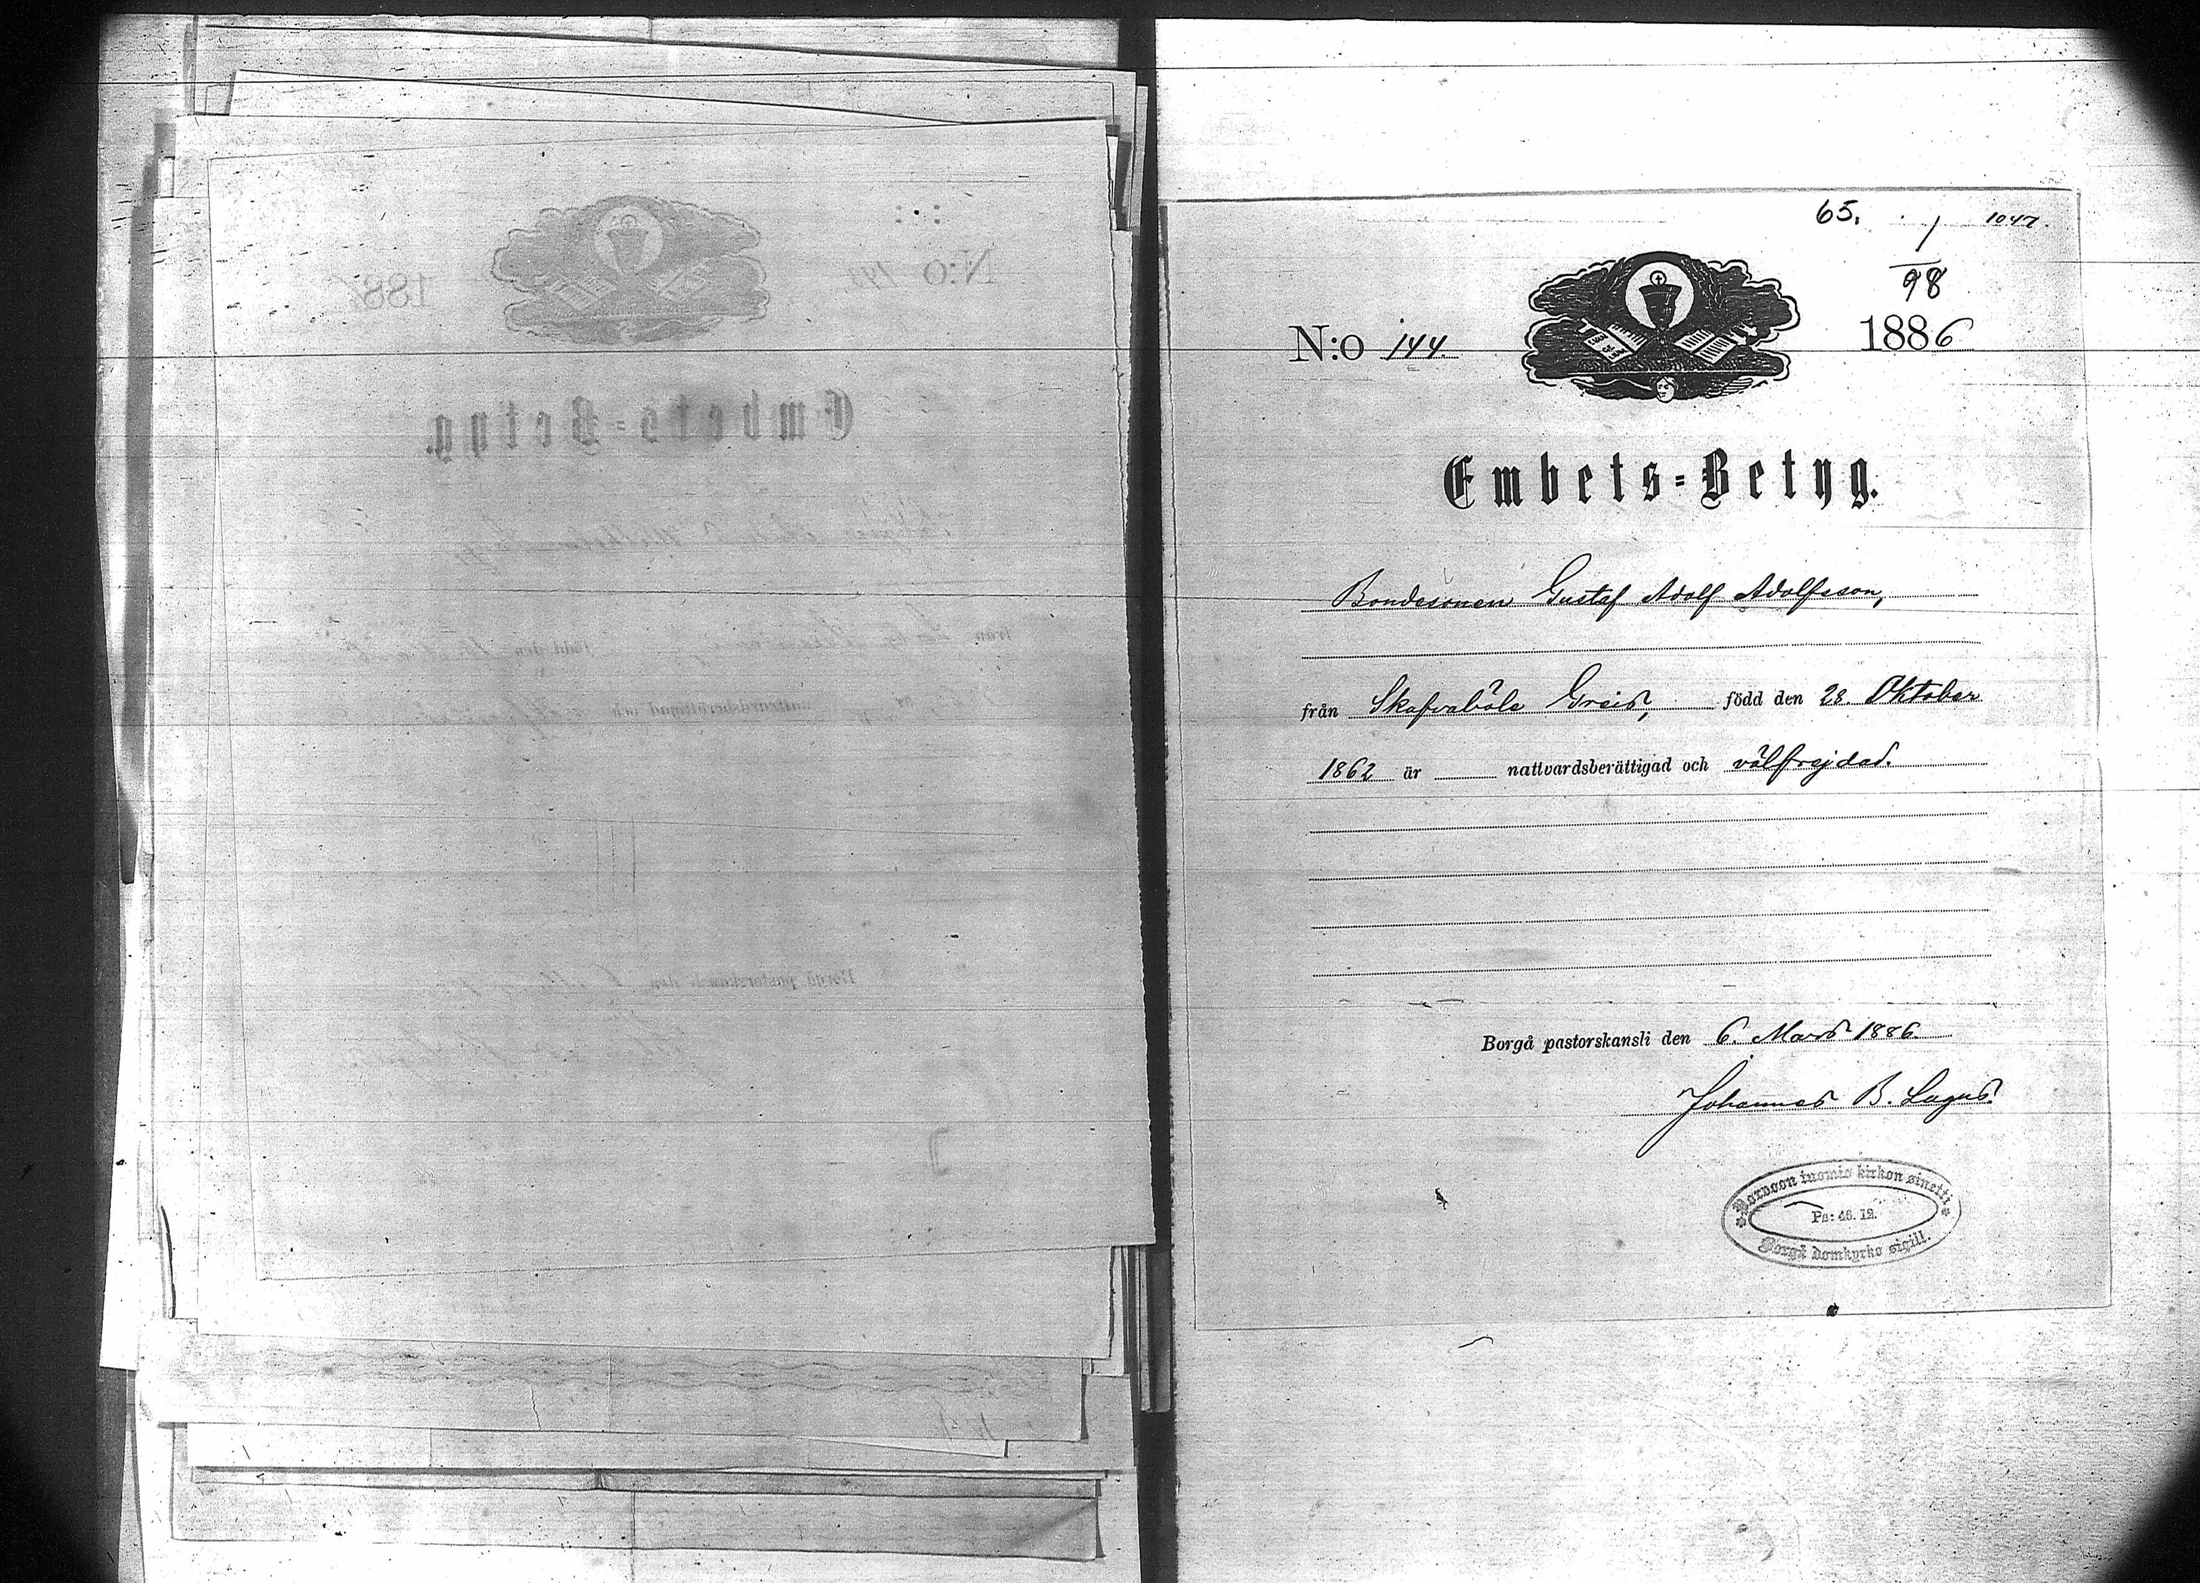 65. 1 1047.
98
N:o 144. 1886
Embets-Betyg.
Bondesonen Gustaf Adolf Adolfsson,
från Skafvaböle Greis, född den 28. Oktober
1862 är nattvardsberättigad och välfrejdad.
Borgå pastorskansli den 6. Mars 1886.
Johannes B. Lagus.
Porvoon tuomio kirkon sinetti
Ps: 46. 12.
Borgå domkyrko sigill.